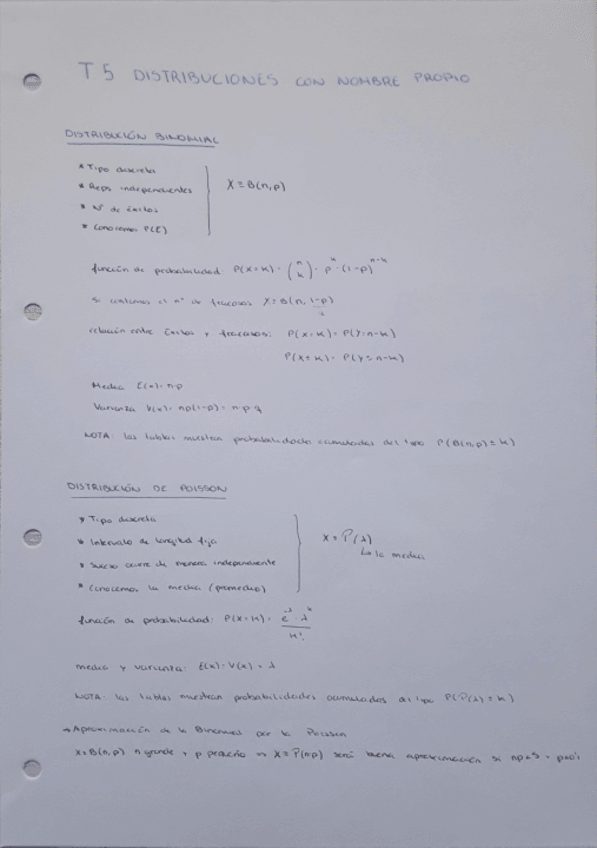 T5 DISTRIBUCIONES CON NOMBRE PROPIO
DISTRIBUCIÓN BINOMIAL
* Tipo discreta
* Reps independientes
* Nº de éxitos
* Conocemos P(E)
X ≡ B(n,p)
función de probabilidad: P(X=k) = (n k) · p^k · (1-p)^n-k
Si contamos el nº de fracasos Y ≡ B(n, 1-p)
relación entre éxitos y fracasos: P(X=k) = P(Y=n-k)
P(X≤k) = P(Y≥n-k)
Media E(x) = n·p
Varianza V(x) = np(1-p) = n·p·q
NOTA: las tablas muestran probabilidades acumuladas del tipo P(B(n,p) ≤ k)
DISTRIBUCIÓN DE POISSON
* Tipo discreta
* Intervalo de longitud fija
* Suceso ocurre de manera independiente
* Conocemos la media (promedio)
X ≡ P(λ)
↳ la media
función de probabilidad: P(X=k) = e^-λ · λ^k / k!
media y varianza: E(x) = V(x) = λ
NOTA: las tablas muestran probabilidades acumuladas del tipo P(P(λ) ≤ k)
→ Aproximación de la Binomial por la Poisson
X ≡ B(n,p) n grande y p pequeño ⇒ X ≡ P(np) será buena aproximación si